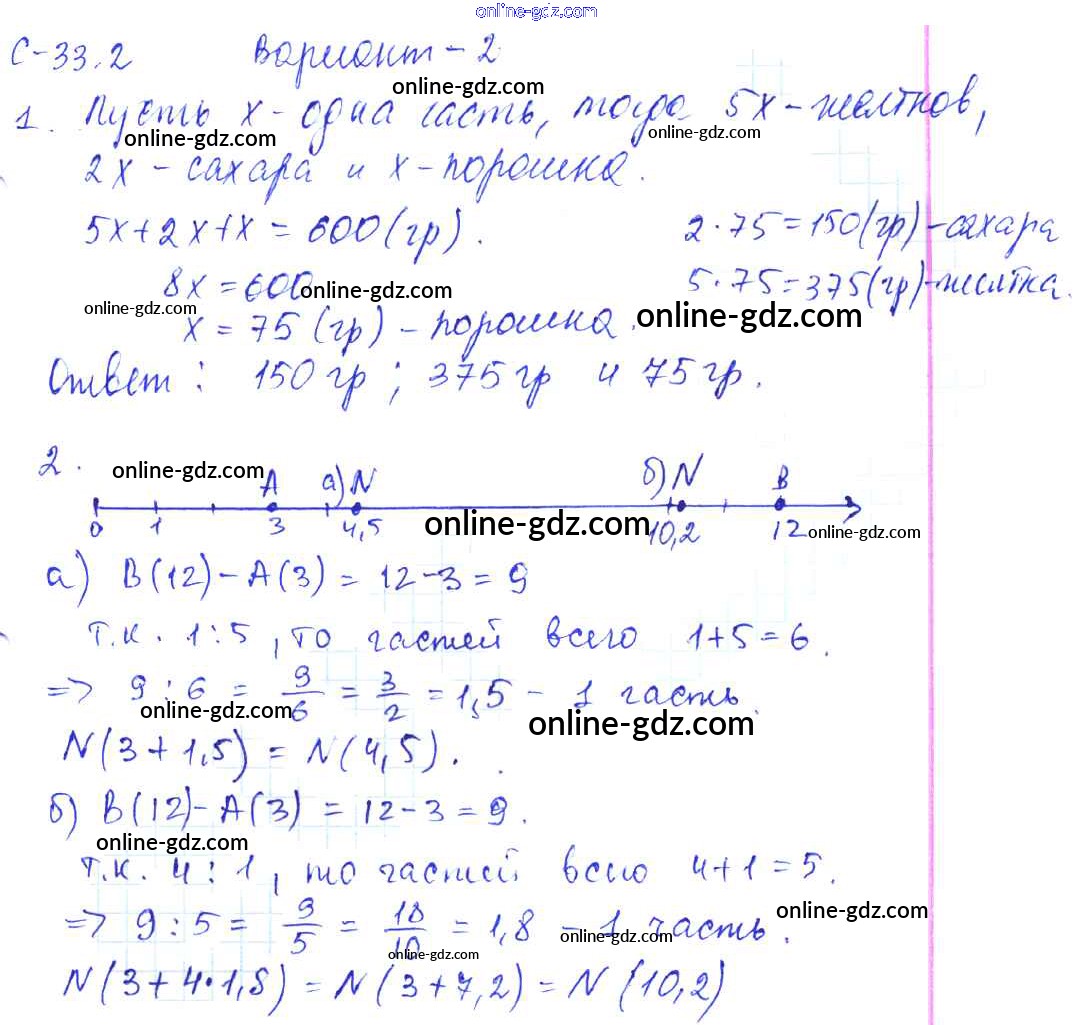 online-gdz.com
С-33.2 Вариант-2
online-gdz.com
1. Пусть x - одна часть, тогда 5x - желтков,
online-gdz.com online-gdz.com
2x - сахара и x - порошка.
5x+2x+x = 600 (гр). 2·75=150(гр)-сахара
8x = 600 online-gdz.com 5·75=375(гр)-желтка.
online-gdz.com
x = 75 (гр) - порошка. online-gdz.com
Ответ: 150 гр; 375 гр и 75 гр.
2. online-gdz.com
A а) N б) N B
0 1 3 4,5 online-gdz.com 10,2 12 online-gdz.com
а) B(12) - A(3) = 12-3 = 9
т.к. 1:5, то частей всего 1+5=6.
=> 9:6 = 9/6 = 3/2 = 1,5 - 1 часть.
online-gdz.com online-gdz.com
N(3+1,5) = N(4,5).
б) B(12) - A(3) = 12-3 = 9.
online-gdz.com
т.к. 4:1, то частей всего 4+1=5.
=> 9:5 = 9/5 = 18/10 = 1,8 - 1 часть.
online-gdz.com online-gdz.com online-gdz.com
N(3+4·1,8) = N(3+7,2) = N(10,2)